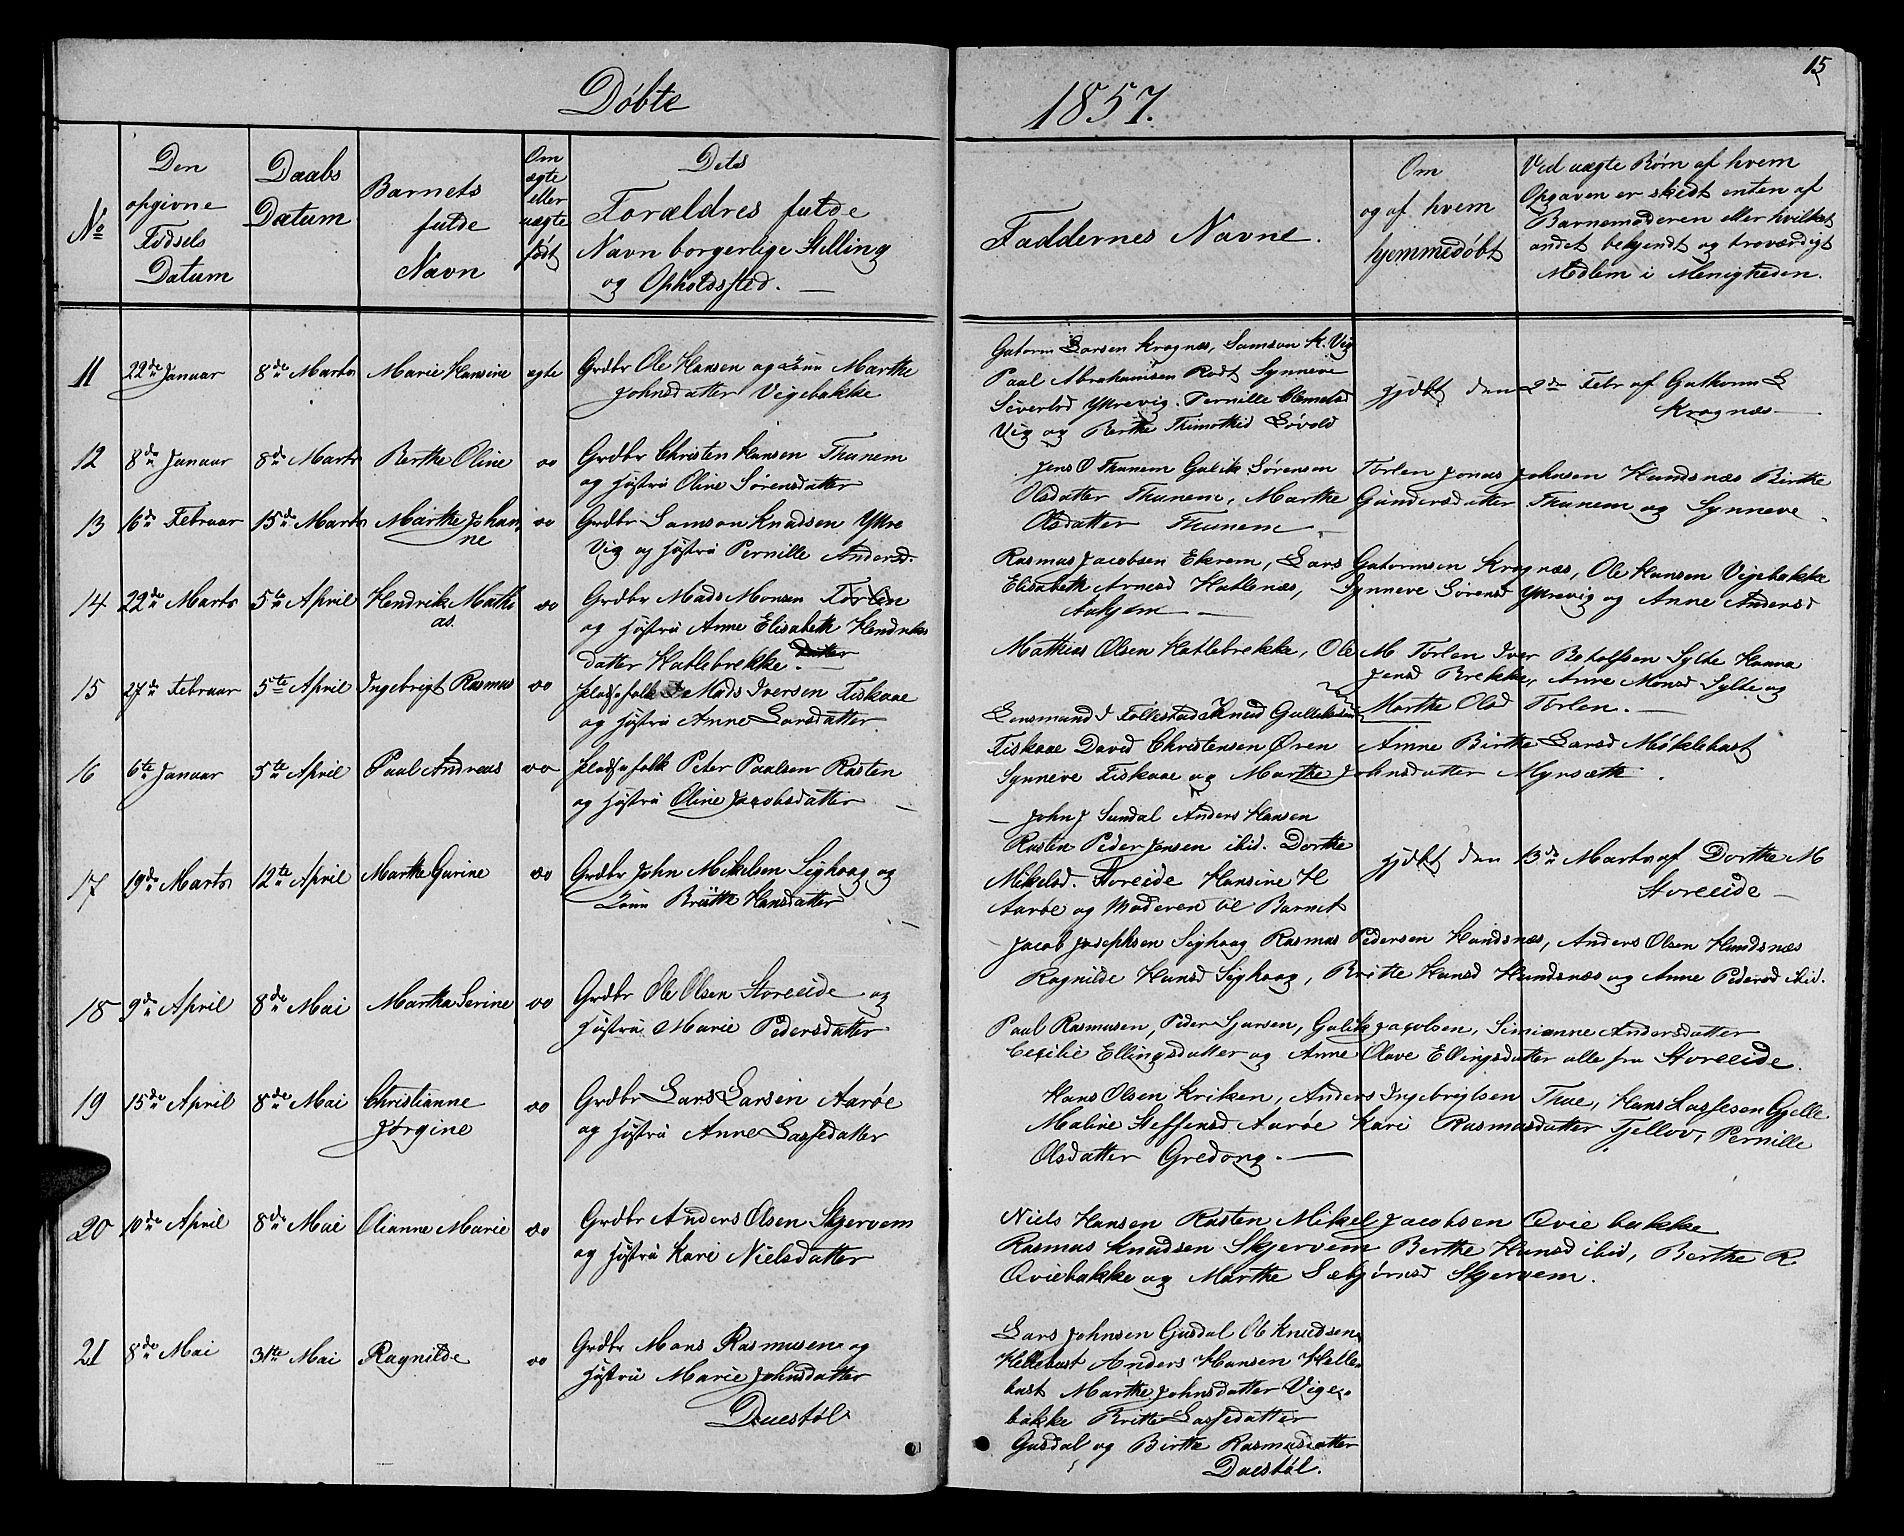 15
Døbte
1857.
No
Den
opgivne
Fødsels
Datum
Daabs
Datum
Barnets
fulde
Navn
Om
ægte
eller
uægte
født
Dets
Forældres fulde
Navn borgerlige Stilling
og Opholdssted. —
Faddernes Navne.
Om
og af hvem
hjemmedøbt
Ved uægte Børn af hvem
Opgaven er skedt enten af
Barnemoderen eller hvilket
andet bekjendt og troværdigt
Medlem i Menigheden.
11 22de Januar 8de Marts Marie Hansine ægte Grdbr Ole Hansen og Marthe
Johnsdatter Vigebakke
Gutorm Larsen Kragnæs, Samson K. Vig
Paul Abrahamsen Rødt Synneve
Sivertsd Ytrevig. Pernille Clemetsd
Vig og Berthe Thimothæd Løvold
hjdbt den 2de Febr af Guthorm L
Kragnæs —
12 8de Januar 8de Marts Berthe Oline oo Grdbr Christen Hansen Thunem
og Hustru Oline Sørensdatter
Jens O Thunem Gulik Sørensen Tørlen Jonas Johnsen Hundsnæs Birthe
Olsdatter Thunem, Marthe Gundersdatter Thunem og Synneve
Olsdatter Thunem —
13 16de Februar 15de Marts Marthe Johan
ne oo Grdbr Samson Knudsen Ytre
Vig og Hustru Pernille Andersd.
Rasmus Jacobsen Ekrem, Lars Gutormsen Kragnæs, Ole Hansen Vigebakke
Elisabeth Arnesd Hatlenæs, Synneve Sørensd Ytrevig og Anne Andersd
Aahjem —
14 22de Marts 5te April Hendrik Mathi
as. oo Grdbr Mads Monsen Tørlen
og Hustru Anne Elisabeth Hendriks
datter Hatlebrekke. datter
Mathias Olsen Hatlebrekke, Ole M Tørlen Iver Botolfsen Sylte Hanna
Jensd Brekke, Anne Monsd Sylte og
Marthe Olsd Tørlen. —
15 27de Februar 5te April Ingebrigt Rasmus oo Pladsfolk Mads Iversen Fiskaae
og Hustru Anne Larsdatter
Lensmand J Follestad Knud Gulliksen
Fiskaae David Christensen Øren Anne Birthe Larsd Møklebust
Synneve Fiskaae og Marthe Johnsdatter Myrsæth.
16 6te Januar 5te April Paul Andreas oo Pladsfolk Peter Paulsen Rasten
og Hustru Oline Jacobsdatter —
— John J Sundal Anders Hansen
Rasten Peder Jensen ibid. Dorthe
Mikelsd. Storeide Hansine H
Aarøe og Moderen til Barnet
hjdbt den 13de Marts af Dorthe M
Storeeide —
17 19de Marts 12te April Marthe Gurine oo Grdbr John Mikelsen Sighaag og
Britthe Hansdatter —
— Jacob Josephsen Sighaag Rasmus Pedersen Hundsnæs, Anders Olsen Hundsnæs
Ragnilde Hansd Sighaag, Britte Hansd Hundsnæs og Anne Pedersd ibid.
18 9de April 8de Mai Martha Serine oo Grdbr Ole Olsen Storeeide og
Hustru Marie Pedersdatter
Paul Rasmusen, Peder Larsen, Gulik Jacobsen, Simianne Andersdatter
Cecilie Ellingsdatter og Anne Olave Ellingsdatter alle fra Storeeide.
19 15de April 8de Mai Christianne
Jørgine oo Grdbr Lars Larsen Aarøe
og Hustru Anne Lassedatter
Hans Olsen Kriken, Anders Ingebrigtsen Thue, Hans Lassesen Gjelle
Maline Steffensd Aarøe Kari Rasmusdatter Tjellov, Pernille
Olsdatter Gredong. —
20 10de April 8de Mai Olianne Marie oo Grdbr Anders Olsen Skjervem
og Hustru Kari Nielsdatter
Niels Hansen Rasten Mikel Jacobsen Qvie bakke
Rasmus Knudsen Skjervem Berthe Hansd ibid, Berthe R
Qviebakke og Marthe Sæbjørnsd Skjervem.
21 8de Mai 31te Mai Ragnilde oo Grdbr Mons Rasmusen og
Hustru Marie Johnsdatter
Duestøl
Lars Johnsen Gusdal Ole Knudsen
Hellebust Anders Hansen Helle-
bust Marthe Johnsdatter Vige-
bakke Britte Lassedatter
Gusdal og Birthe Rasmusdatter
Duestøl.